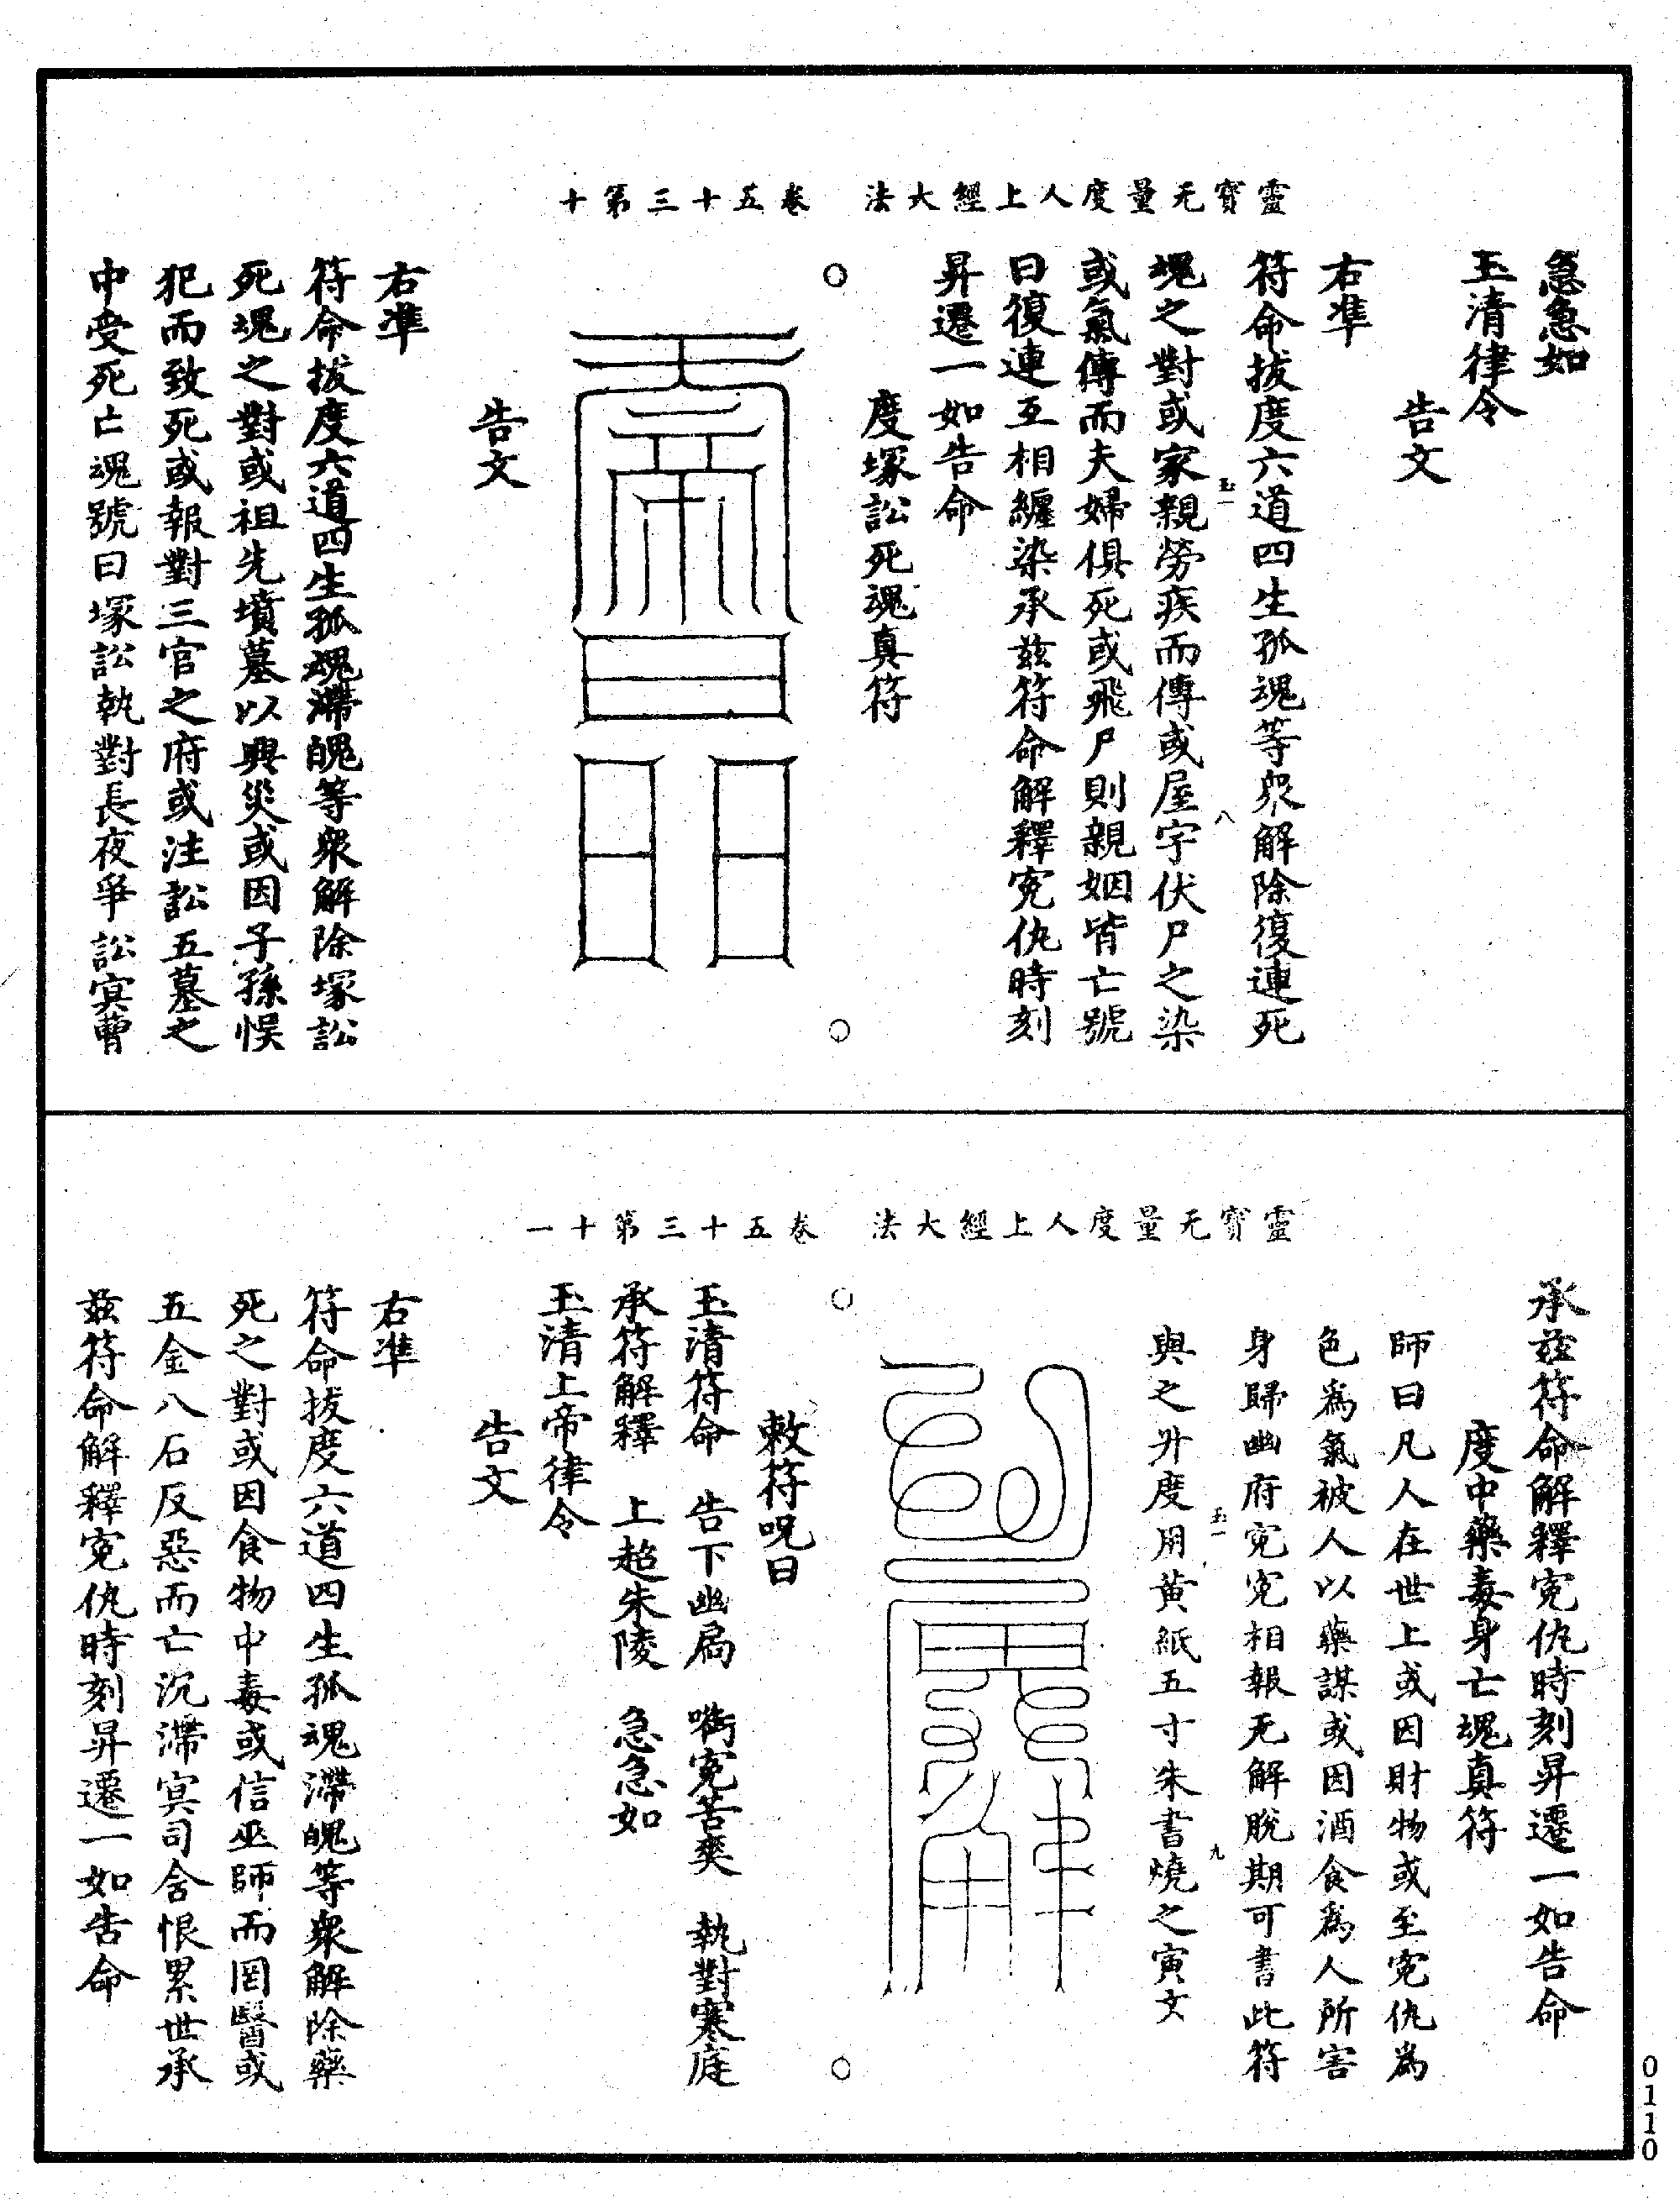 靈寶无量度人上經大法　卷五十三第十
急急如
玉清律令
告文
右準
符命拔度六道四生孤魂等衆解除復連死
玉一
八
魂之對或家親勞疾而傳或屋宇伏尸之染
或氣傳而夫婦俱死或飛尸則親姻皆亡號
曰復連互相纏染承兹符命解釋寃仇時刻
昇遷一如告命
度塚訟死魂真符
告文
右準
符命拔度六道四生孤魂滯魄等衆解除塚訟
死魂之對或祖先墳墓以興災或因子孫悞
犯而致死或報對三官之府或注訟五墓之
中受死亡魂號曰塚訟執對長夜爭訟寞曹
靈寶无量度人上經大法　卷五十三第十一
承兹符命解釋寃仇時刻昇遷一如告命
度中藥毒身亡魂真符
師曰凡人在世上或因財物或至寃仇爲
色爲氣被人以藥謀或因酒食爲人所害
身歸幽府寃寃相報无解脫期可書此符
玉一
九
與之升度用黄紙五寸朱書燒之寅文
敕符呪曰
玉清符命　告下幽扃　嘞寃苦爽　執對寒庭
承符解釋　上超朱陵　急急如
玉清上帝律令
告文
右準
符命拔度六道四生孤魂滯魄等衆解除藥
死之對或因食物中毒或信巫師而罔醫或
五金八石反惡而亡沉滯寞司含恨累世承
兹符命解釋寃仇時刻昇遷一如告命
0110